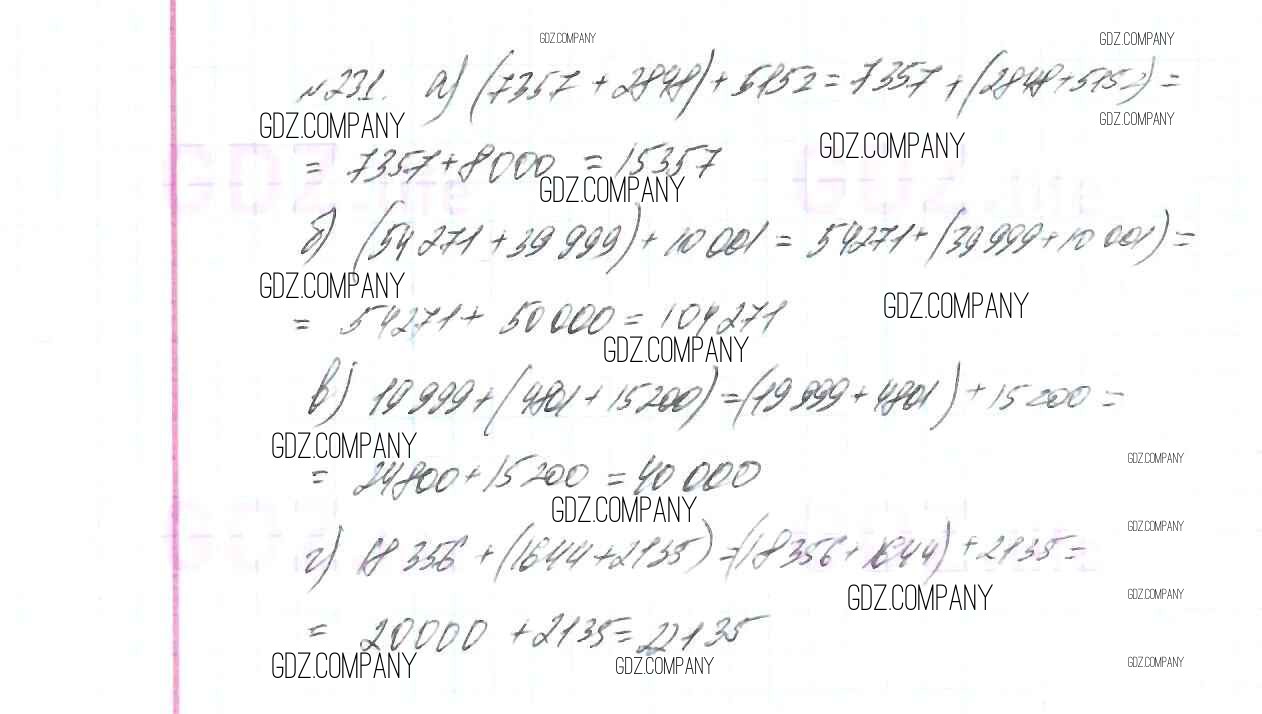 GDZ.COMPANY
GDZ.COMPANY
№231. а) (7357 + 2848) + 5152 = 7357 + (2848 + 5152) =
GDZ.COMPANY
GDZ.COMPANY
GDZ.COMPANY
= 7357 + 8000 = 15357
GDZ.COMPANY
б) (54 271 + 39 999) + 10 001 = 54271 + (39 999 + 10 001) =
GDZ.COMPANY
GDZ.COMPANY
= 54271 + 50 000 = 104 271
GDZ.COMPANY
в) 19 999 + (4801 + 15 200) = (19 999 + 4801) + 15 200 =
GDZ.COMPANY
GDZ.COMPANY
= 24800 + 15 200 = 40 000
GDZ.COMPANY
GDZ.COMPANY
г) 18 356 + (1644 + 2135) = (18 356 + 1644) + 2135 =
GDZ.COMPANY
GDZ.COMPANY
= 20000 + 2135 = 22135
GDZ.COMPANY
GDZ.COMPANY
GDZ.COMPANY